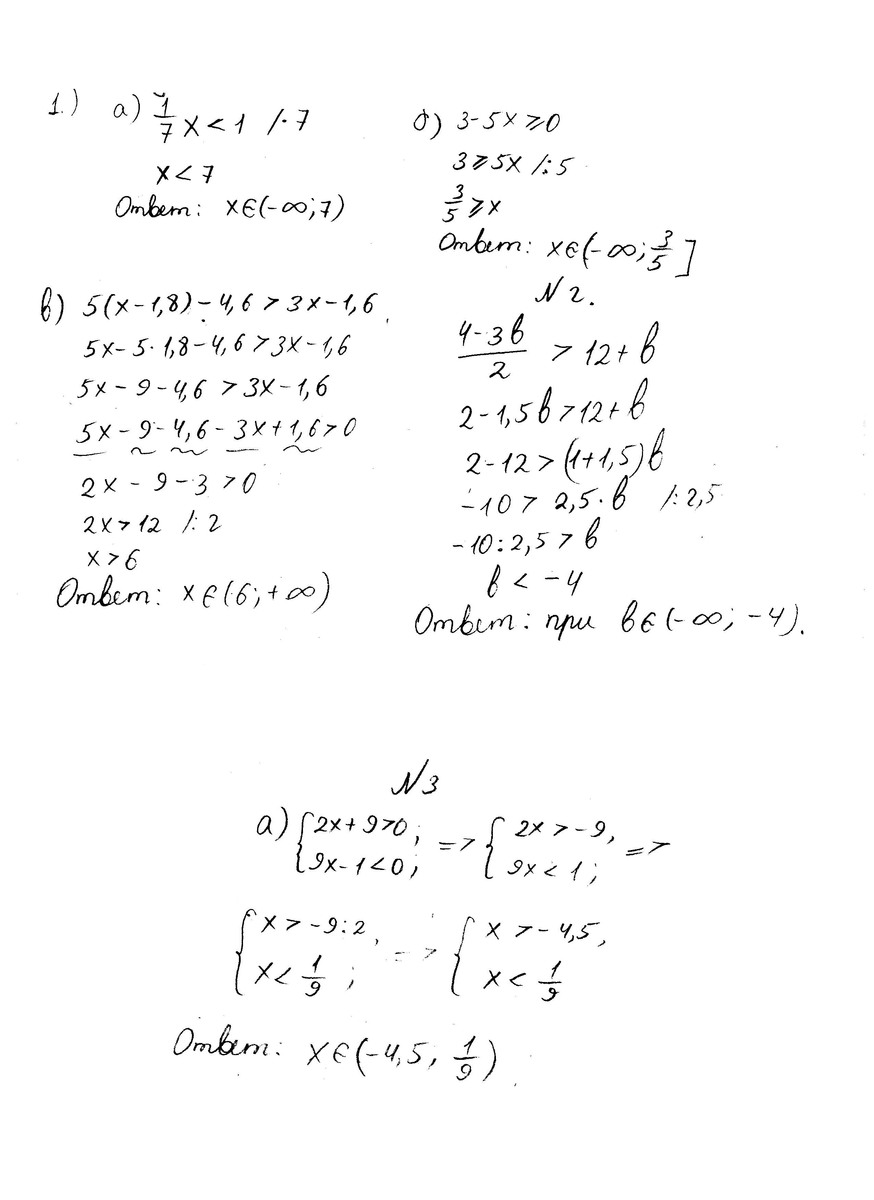 1.) а) 1/7 x < 1 /·7
x < 7
Ответ: x∈(-∞; 7)
б) 3-5x ⩾ 0
3 ⩾ 5x /:5
3/5 ⩾ x
Ответ: x∈(-∞; 3/5]
в) 5(x-1,8)-4,6 > 3x-1,6
5x-5·1,8-4,6 > 3x-1,6
5x-9-4,6 > 3x-1,6
5x-9-4,6-3x+1,6 > 0
2x-9-3 > 0
2x > 12 /:2
x > 6
Ответ: x∈(6; +∞)
N 2.
4-3в/2 > 12+в
2-1,5в > 12+в
2-12 > (1+1,5)в
-10 > 2,5·в /:2,5
-10:2,5 > в
в < -4
Ответ: при в∈(-∞; -4).
N 3
а) { 2x+9>0; => { 2x > -9, =>
9x-1<0; 9x < 1;
{ x > -9:2, => { x > -4,5,
x < 1/9; x < 1/9
Ответ: x∈(-4,5, 1/9)